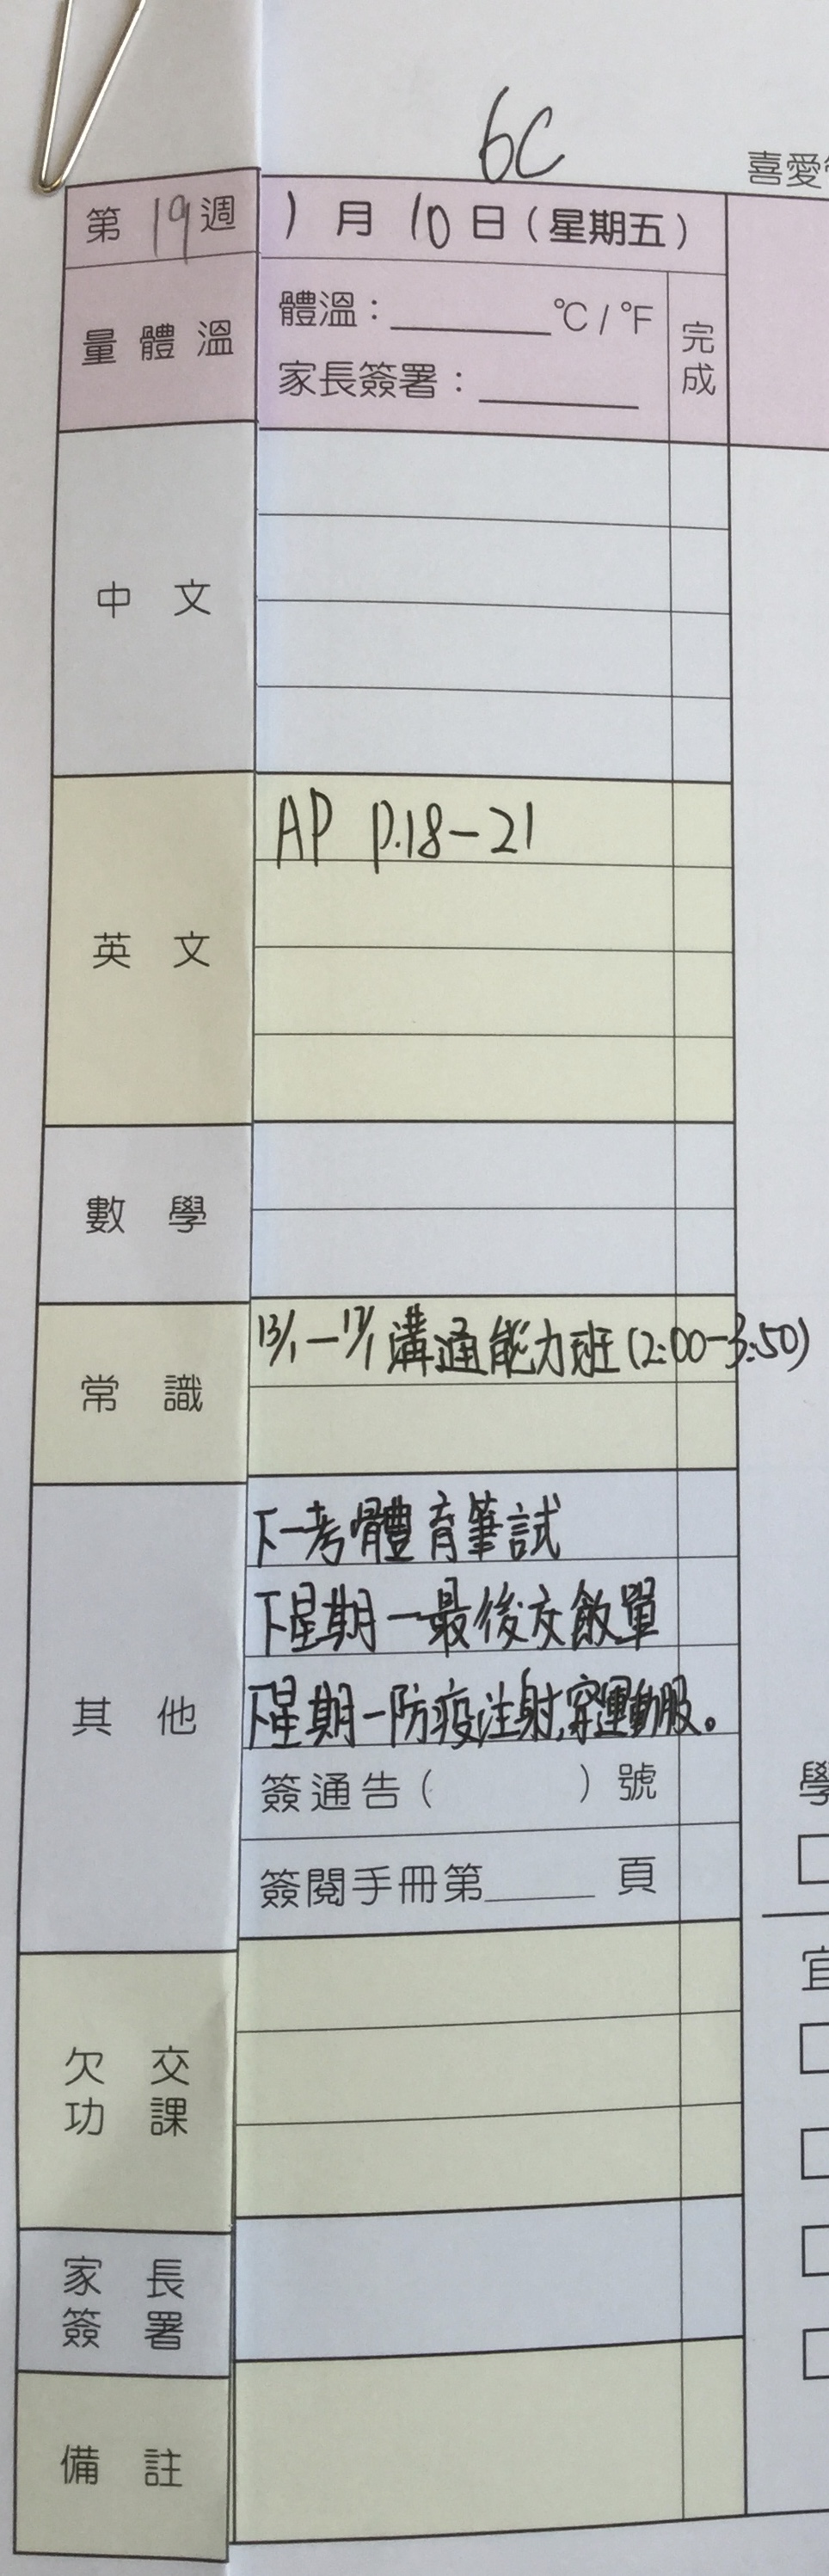 6C
喜愛
第 19 週 1 月 10 日（星期五）
量體溫
體溫：______°C / °F
家長簽署：______
完成
中文
英文
AP P.18-21
數學
常識
13/1-17/1 溝通能力班 (2:00-3:50)
其他
下一考體育筆試
下星期一最後交飯單
下星期一防疫注射,穿運動服。
簽通告（ ）號
簽閱手冊第______頁
學
宜
欠交功課
家長簽署
備註